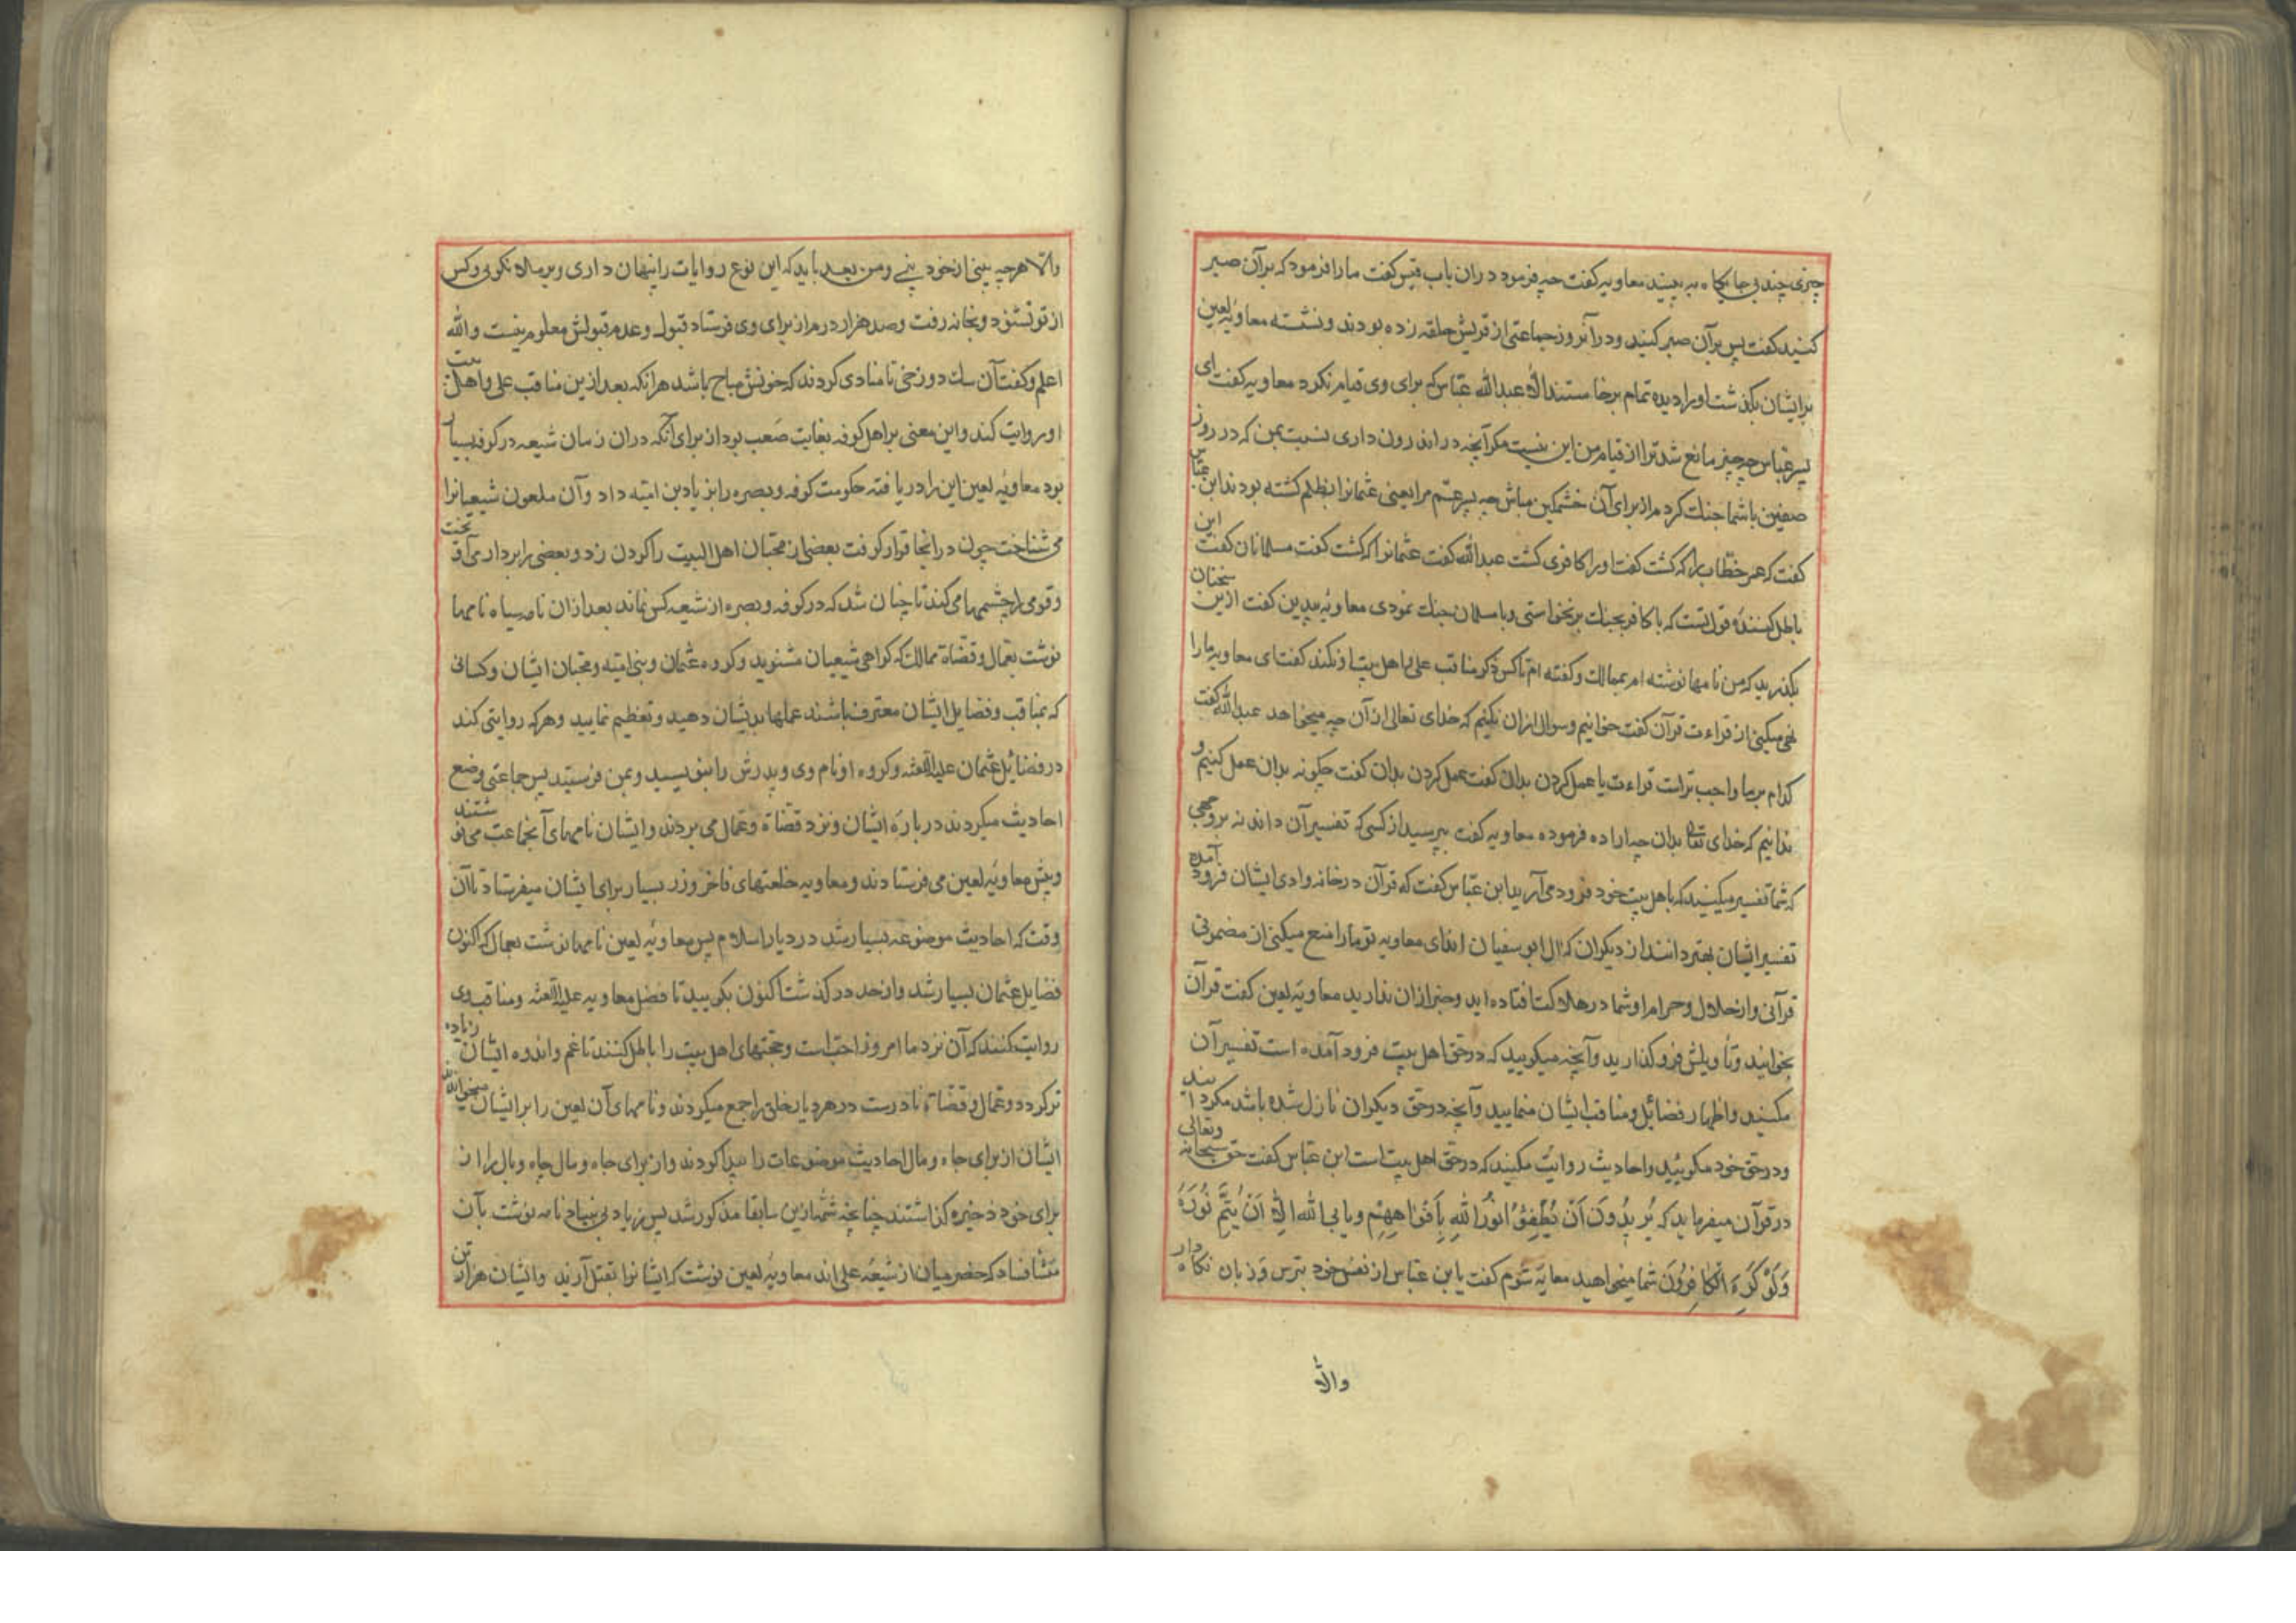 چیزی چند بی جایگاه به بینید معاویه گفت چه فرمود دران باب قیس گفت ما را فرمود که بر آن صبر
کنید گفت پس بر آن صبر کنید و در آنروز جماعتی از قریش حلقه زده بودند و نشسته معاویهٔ لعین
بر ایشان بگذشت او را دیده تمام برخاستند الاّ عبدالله عبّاس که برای وی قیام نکرد معاویه گفت ای
پسر عبّاس چه چیز مانع شد ترا از قیام من این نیست مگر آنچه در اندرون داری نسبت بمن که در روز
صفین با شما جنگ کردم از برای آن خشمگین مباش چه پسر عمّ مرا یعنی عثمانرا بظلم کشته بودند ابن عبّاس
گفت که عمر خطّاب را که کشت گفت او را کافری کشت عبدالله گفت عثمانرا که کشت گفت مسلمانان گفت این
باطل کنندهٔ قول تست که با کافر بجنگ برنخواستی و با مسلمان جنگ نمودی معاویهٔ بیدین گفت ازین سخنان
بگذرید که من نامها نوشته ام بممالک و گفته ام تا کس ذکر مناقب علی و اهل بیت او نکند گفت ای معاویه ما را
نهی میکنی از قراءت قرآن گفت خوانیم و سوال ازان نکنیم که خدای تعالی از آن چه میخواهد عبدالله گفت
کدام بر ما واجب تر است قراءت یا عمل کردن بدان گفت عمل کردن بدان گفت چگونه بدان عمل کنیم و
ندانیم که خدای تعالی بدان چه اراده فرموده معاویه گفت بپرسید از کسی که تفسیر آن داند نه بر وجهی
که شما تفسیر میکنید که باهل بیت خود فرود می آرید ابن عبّاس گفت که قرآن در خانه وادی ایشان فرود آمده
تفسیر ایشان بهتر دانند از دیگران که آل ابو سفیان اند ای معاویه تو ما را منع میکنی از مضمونی
قرآنی و از حلال و حرام او شما در هلاکت افتاده اید و خبر ازان ندارید معاویهٔ لعین گفت قرآن
بخوانید و تأویلش فرو گذارید و آنچه میگویید که در حق اهل بیت فرود آمده است تفسیر آن
مکنید و اظهار فضائل و مناقب ایشان منمایید و آنچه در حق دیگران نازل شده باشد مگردانید
و در حق خود مگویید و احادیث روایت مکنید که در حق اهل بیت است ابن عبّاس گفت حق سبحانه وتعالی
در قرآن میفرماید که یُریدُونَ اَنْ یُطْفِؤُا نُورَ اللهِ بِاَفْوَاهِهِمْ ویابی الله الاّ اَنْ یُتِمَّ نُورَهُ
وَلَوْ کَرِهَ الْکَافِرُونَ شما میخواهید معایهٔ شوم گفت یا ابن عبّاس از نفس خود بترس و زبان نگاه دار
والاّ
والاّ هر چه بینی از خود بینی و من بعد باید که این نوع روایات را پنهان داری و بر ملا نگویی و کس
از تو نشنود و بخانه رفت و صد هزار درم از برای وی فرستاد قبول و عدم قبولش معلوم نیست والله
اعلم و گفت آن سک دوزخی تا منادی کردند که خونش مباح باشد هر آنکه بعد ازین مناقب علی و اهل بیت
او روایت کند و این معنی بر اهل کوفه بغایت صَعب بود از برای آنکه دران زمان شیعه در کوفه بسیار
بود معاویهٔ لعین این را دریافته حکومت کوفه و بصره را بزیاد بن امیّه داد و آن ملعون شیعیانرا
می شناخت چون در انجا قرار گرفت بعضی از محبّان اهل البیت را گردن زد و بعضی را بر دار می آویخت
و قومی را چشمها می کند تا چنان شد که در کوفه و بصره از شیعه کس نماند بعد ازان نامه سیاه نامها
نوشت بعمال و قضاة ممالک که گواهی شیعیان مشنوید و گروه عثمان و بنی امیّه و محبّان ایشان و کسانی
که بمناقب و فضایل ایشان معترف باشند عملها بدیشان دهید و تعظیم نمایید و هر که روایتی کند
در فضائل عثمان علیه اللعنه و گروه او نام وی و پدرش را بنویسید و بمن فرستید پس جماعتی وضع
احادیث میکردند در بارهٔ ایشان و نزد قضاة و عمال می بردند و ایشان نامهای آنجماعت می نوشتند
و پیش معاویهٔ لعین می فرستادند و معاویه خلعتهای فاخر و زر بسیار برای ایشان میفرستاد تا آن
وقت که احادیث موضوعه بسیار شد در دیار اسلام پس معاویهٔ لعین نامها نوشت بعمال که اکنون
فضایل عثمان بسیار شد و از حد در گذشت اکنون بگویید تا فضل معاویه علیه اللعنه و مناقب وی
روایت کنند که آن نزد ما امروز احبّ است و حجتهای اهل بیت را باطل کنند تا غم و اندوه ایشان زیاده
تر گردد و عمال و قضاة نادرست در هر دیار خلق را جمع میکردند و نامهای آن لعین را بر ایشان میخواندند
ایشان از برای جاه و مال احادیث موضوعات را پیدا کردند و از برای جاه و مال چاه و بال را از
برای خود ذخیره گذاشتند چنانچه شمّه ازین سابقا مذکور شد پس زیاد بی بنیاد نامه نوشت بآن
منشا فساد که حضرمیان از شیعهٔ علی اند معاویهٔ لعین نوشت که ایشانرا بقتل آرند و ایشان هزار تن